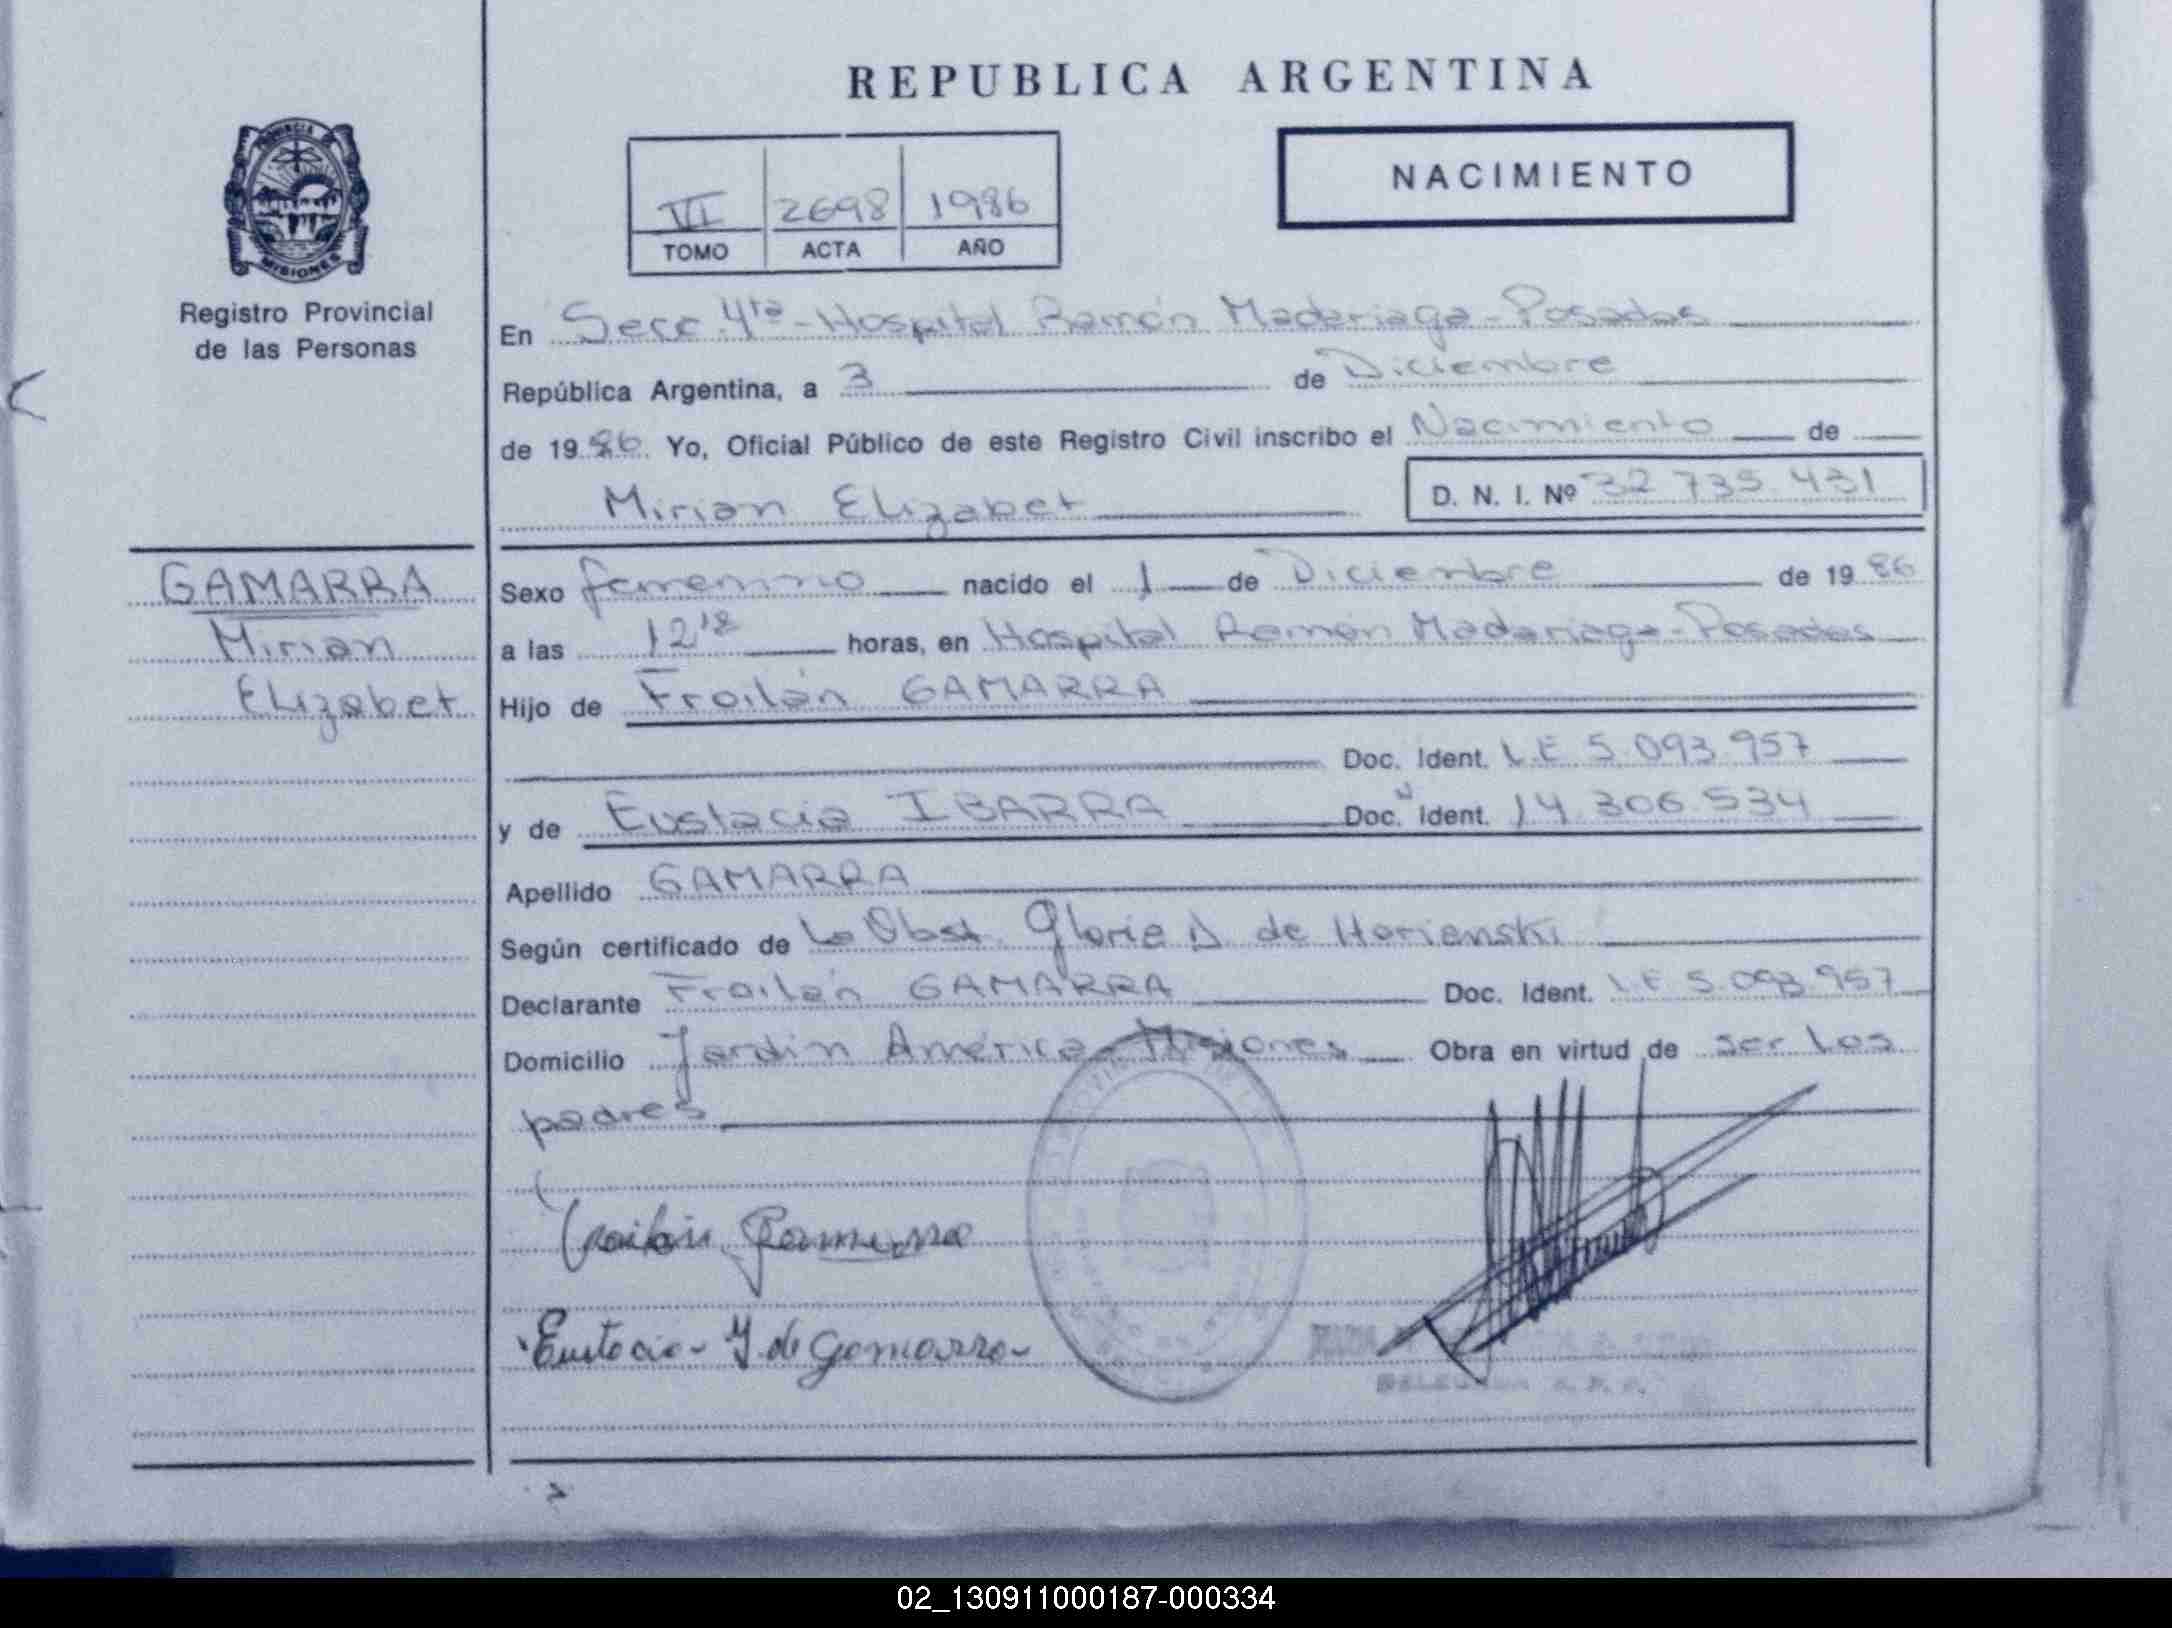 REPUBLICA ARGENTINA
PROVINCIA DE
MISIONES
Registro Provincial
de las Personas
VI 2698 1986
TOMO ACTA AÑO
NACIMIENTO
En Secc. 4ta - Hospital Ramón Madariaga - Posadas
República Argentina, a 3 de Diciembre
de 1986. Yo, Oficial Público de este Registro Civil inscribo el Nacimiento de
Mirian Elizabet D. N. I. Nº 32 735 431
GAMARRA
Mirian
Elizabet
Sexo femenino nacido el 1 de Diciembre de 1986
a las 12 18 horas, en Hospital Ramón Madariaga - Posadas
Hijo de Froilán GAMARRA
Doc. Ident. L.E 5.093.957
y de Eustacia IBARRA Doc. Ident. 14.306.534
Apellido GAMARRA
Según certificado de La Obst. Gloria D de Horienski
Declarante Froilán GAMARRA Doc. Ident. L.E 5.093.957
Domicilio Jardín América - Misiones Obra en virtud de ser los
padres
Froilan Gamarra
Eustacia I. de Gamarra
02_130911000187-000334